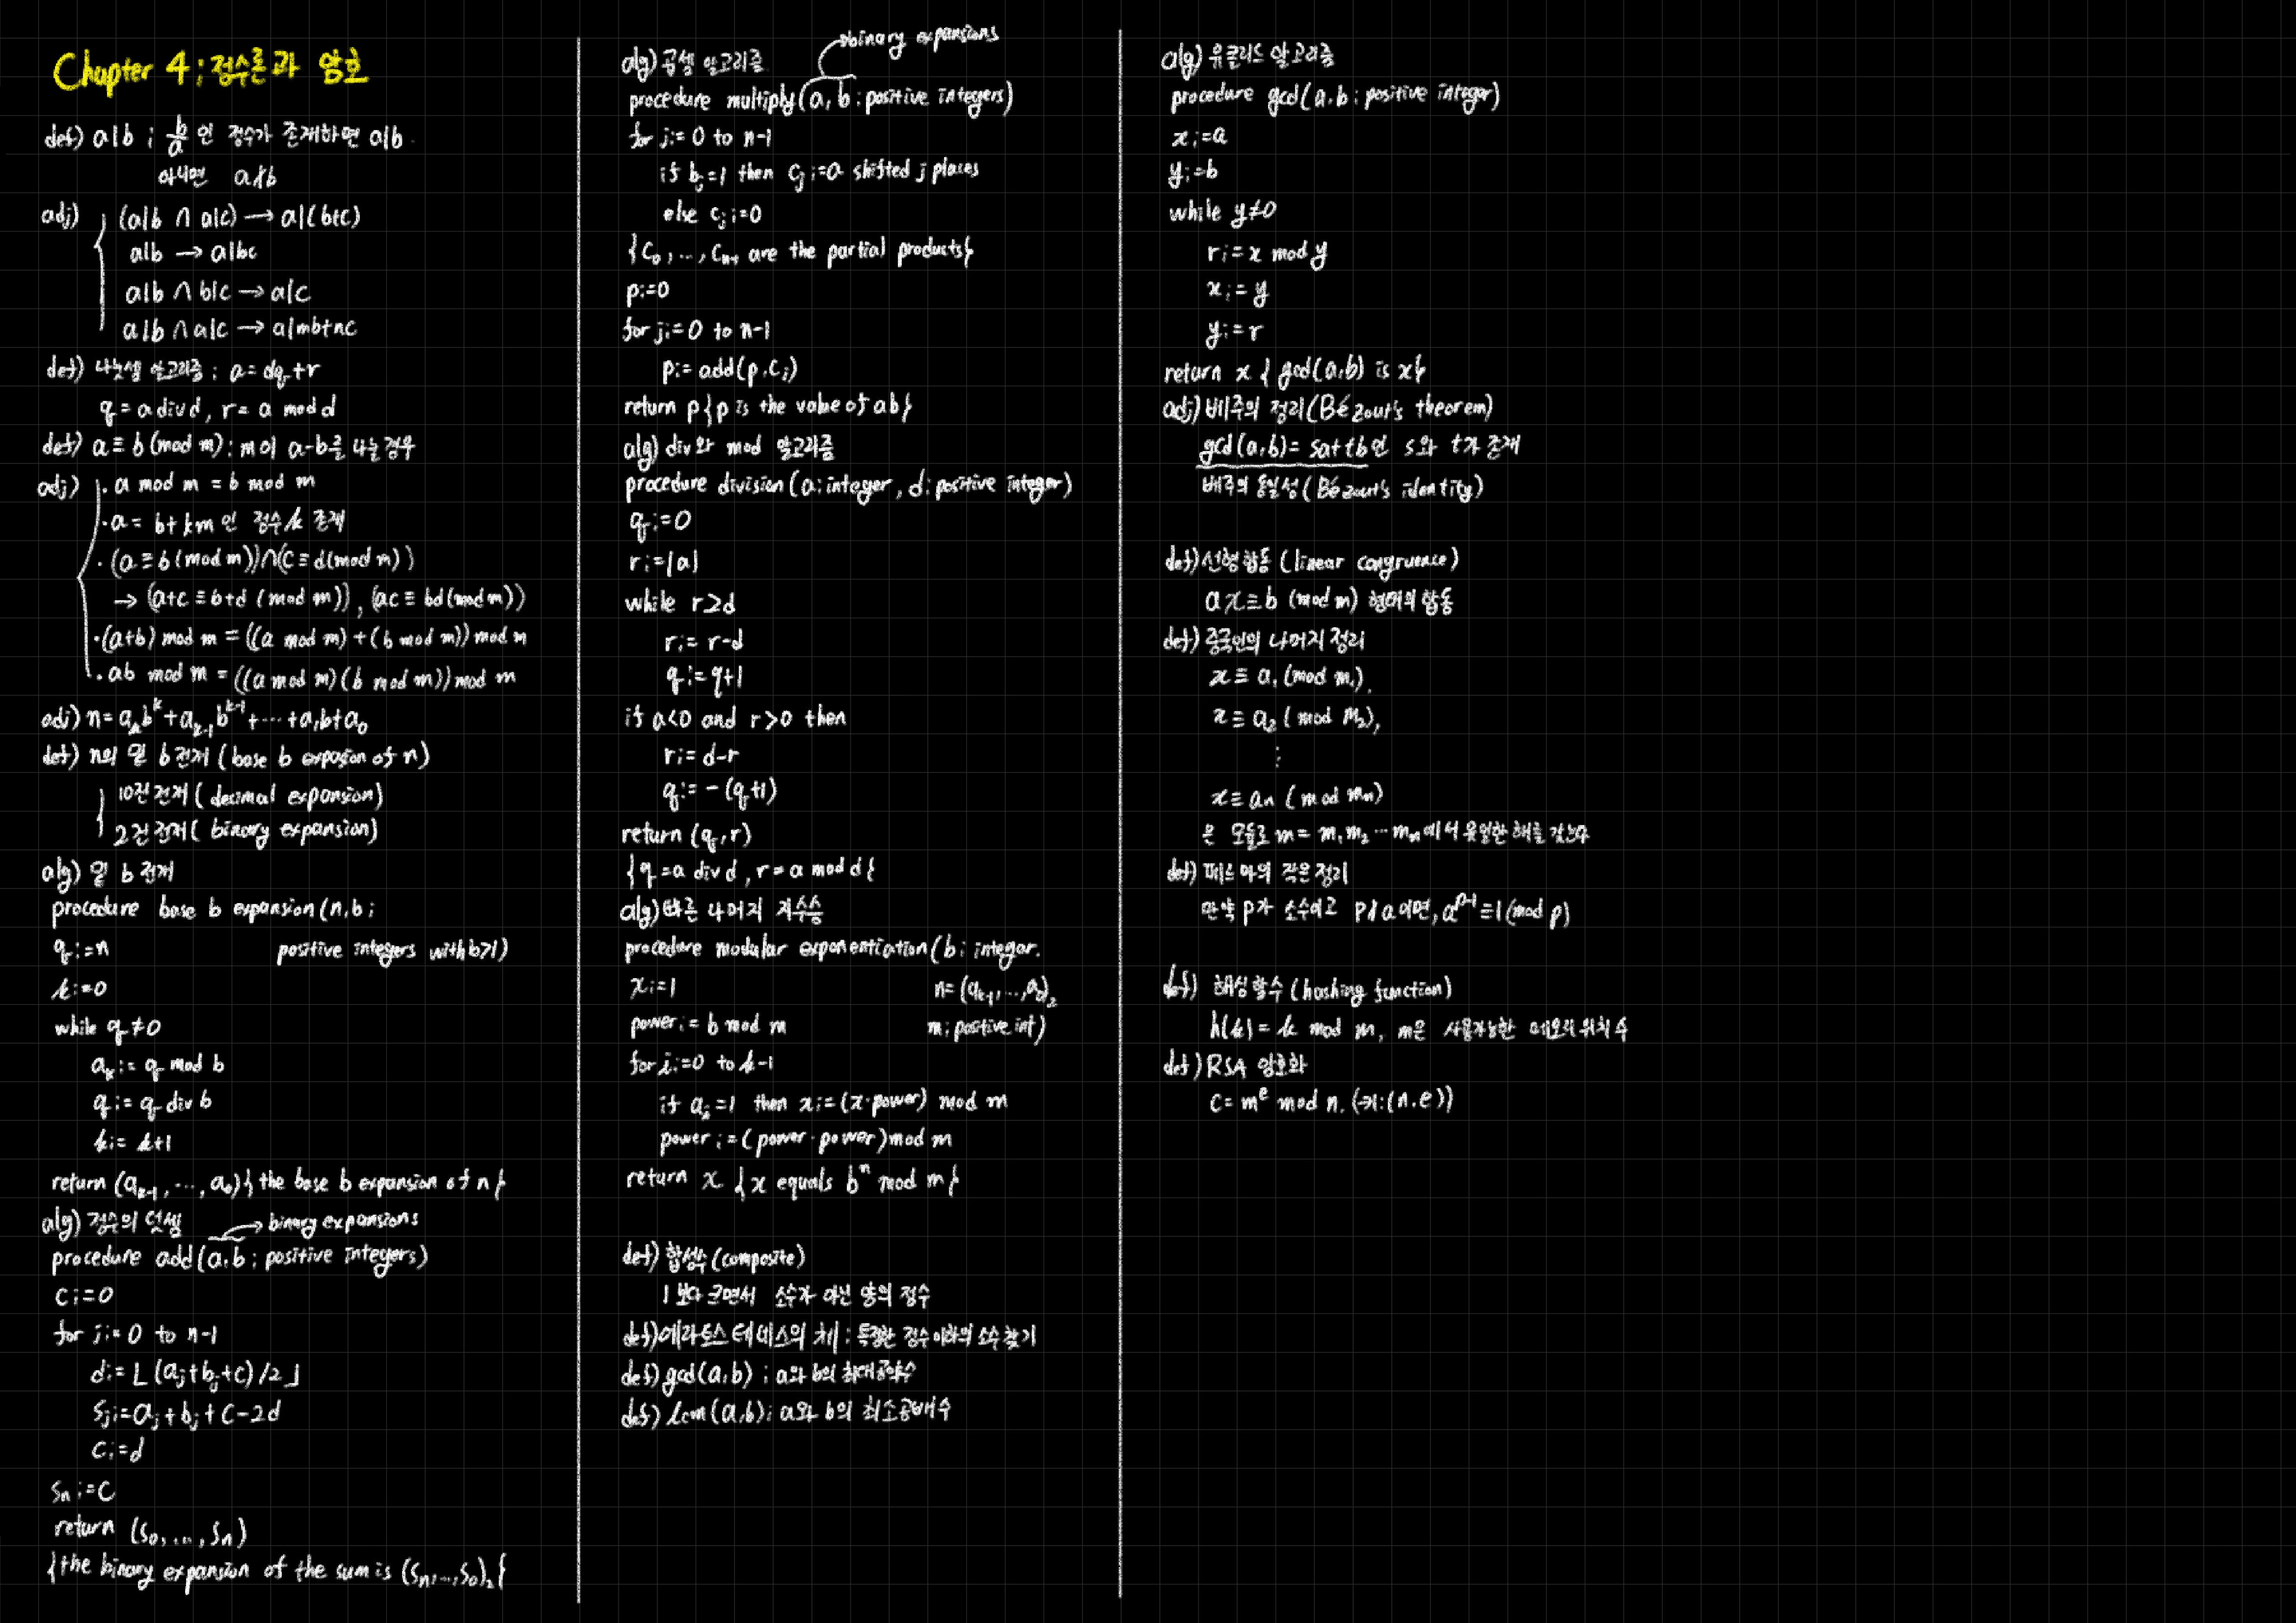 Chapter 4 ; 정수론과 암호
def) a|b ; b/a 인 정수가 존재하면 a|b.
아니면 a∤b
adj) (a|b ∩ a|c) → a|(b+c)
a|b → a|bc
a|b ∩ b|c → a|c
a|b ∩ a|c → a|mb+nc
def) 나눗셈 알고리즘 ; a = dq+r
q = a div d, r = a mod d
def) a ≡ b (mod m) : m이 a-b를 나눌 경우
adj) · a mod m = b mod m
· a = b+km 인 정수 k 존재
· (a ≡ b (mod m)) ∩ (c ≡ d (mod m))
→ (a+c ≡ b+d (mod m)), (ac ≡ bd (mod m))
· (a+b) mod m = ((a mod m) + (b mod m)) mod m
· ab mod m = ((a mod m)(b mod m)) mod m
adj) n = aₖbᵏ + aₖ₋₁bᵏ⁻¹ + ⋯ + a₁b + a₀
def) n의 밑 b 전개 (base b expasion of n)
10진 전개 (decimal expansion)
2진 전개 (binary expansion)
alg) 밑 b 전개
procedure base b expansion (n, b ;
q := n positive integers with b>1)
k := 0
while q ≠ 0
aₖ := q mod b
q := q div b
k := k+1
return (aₖ₋₁, ⋯, a₀) {the base b expansion of n}
alg) 정수의 덧셈 → binary expansions
procedure add (a, b ; positive integers)
c := 0
for j := 0 to n-1
d := ⌊(aⱼ+bⱼ+c)/2⌋
sⱼ := aⱼ+bⱼ+c-2d
c := d
sₙ := c
return (s₀, ..., sₙ)
{the binary expansion of the sum is (sₙ, ..., s₀)₂}
→ binary expansions
alg) 곱셈 알고리즘
procedure multiply (a, b ; positive integers)
for j := 0 to n-1
if bⱼ = 1 then cⱼ := a shifted j places
else cⱼ := 0
{c₀, ..., cₙ₋₁ are the partial products}
p := 0
for j := 0 to n-1
p := add(p, cⱼ)
return p {p is the value of ab}
alg) div와 mod 알고리즘
procedure division (a: integer, d: positive integer)
q := 0
r := |a|
while r ≥ d
r := r-d
q := q+1
if a<0 and r>0 then
r := d-r
q := -(q+1)
return (q, r)
{q = a div d, r = a mod d}
alg) 빠른 나머지 지수승
procedure modular exponentiation (b: integer.
x := 1 n = (aₖ₋₁, ..., a₀)₂
power := b mod m m; positive int)
for i := 0 to k-1
if aᵢ = 1 then x := (x·power) mod m
power := (power·power) mod m
return x {x equals bⁿ mod m}
def) 합성수 (composite)
1보다 크면서 소수가 아닌 양의 정수
def) 에라토스테네스의 체 ; 특정한 정수 이하의 소수 찾기
def) gcd(a, b) ; a와 b의 최대공약수
def) lcm(a, b) ; a와 b의 최소공배수
alg) 유클리드 알고리즘
procedure gcd(a, b ; positive integer)
x := a
y := b
while y ≠ 0
r := x mod y
x := y
y := r
return x {gcd(a, b) is x}
adj) 베주의 정리 (Bézout's theorem)
gcd(a, b) = sa+tb인 s와 t가 존재
베주의 동일성 (Bézout's identity)
def) 선형합동 (linear congruence)
ax ≡ b (mod m) 형태의 합동
def) 중국인의 나머지 정리
x ≡ a₁ (mod m₁),
x ≡ a₂ (mod m₂),
⋮
x ≡ aₙ (mod mₙ)
은 모듈로 m = m₁m₂⋯mₙ에서 유일한 해를 갖는다
def) 페르마의 작은 정리
만약 p가 소수이고 p∤a이면, aᵖ⁻¹ ≡ 1 (mod p)
def) 해싱 함수 (hashing function)
h(k) = k mod m, m은 사용가능한 메모리 위치 수
def) RSA 암호화
c = mᵉ mod n, (키: (n, e))